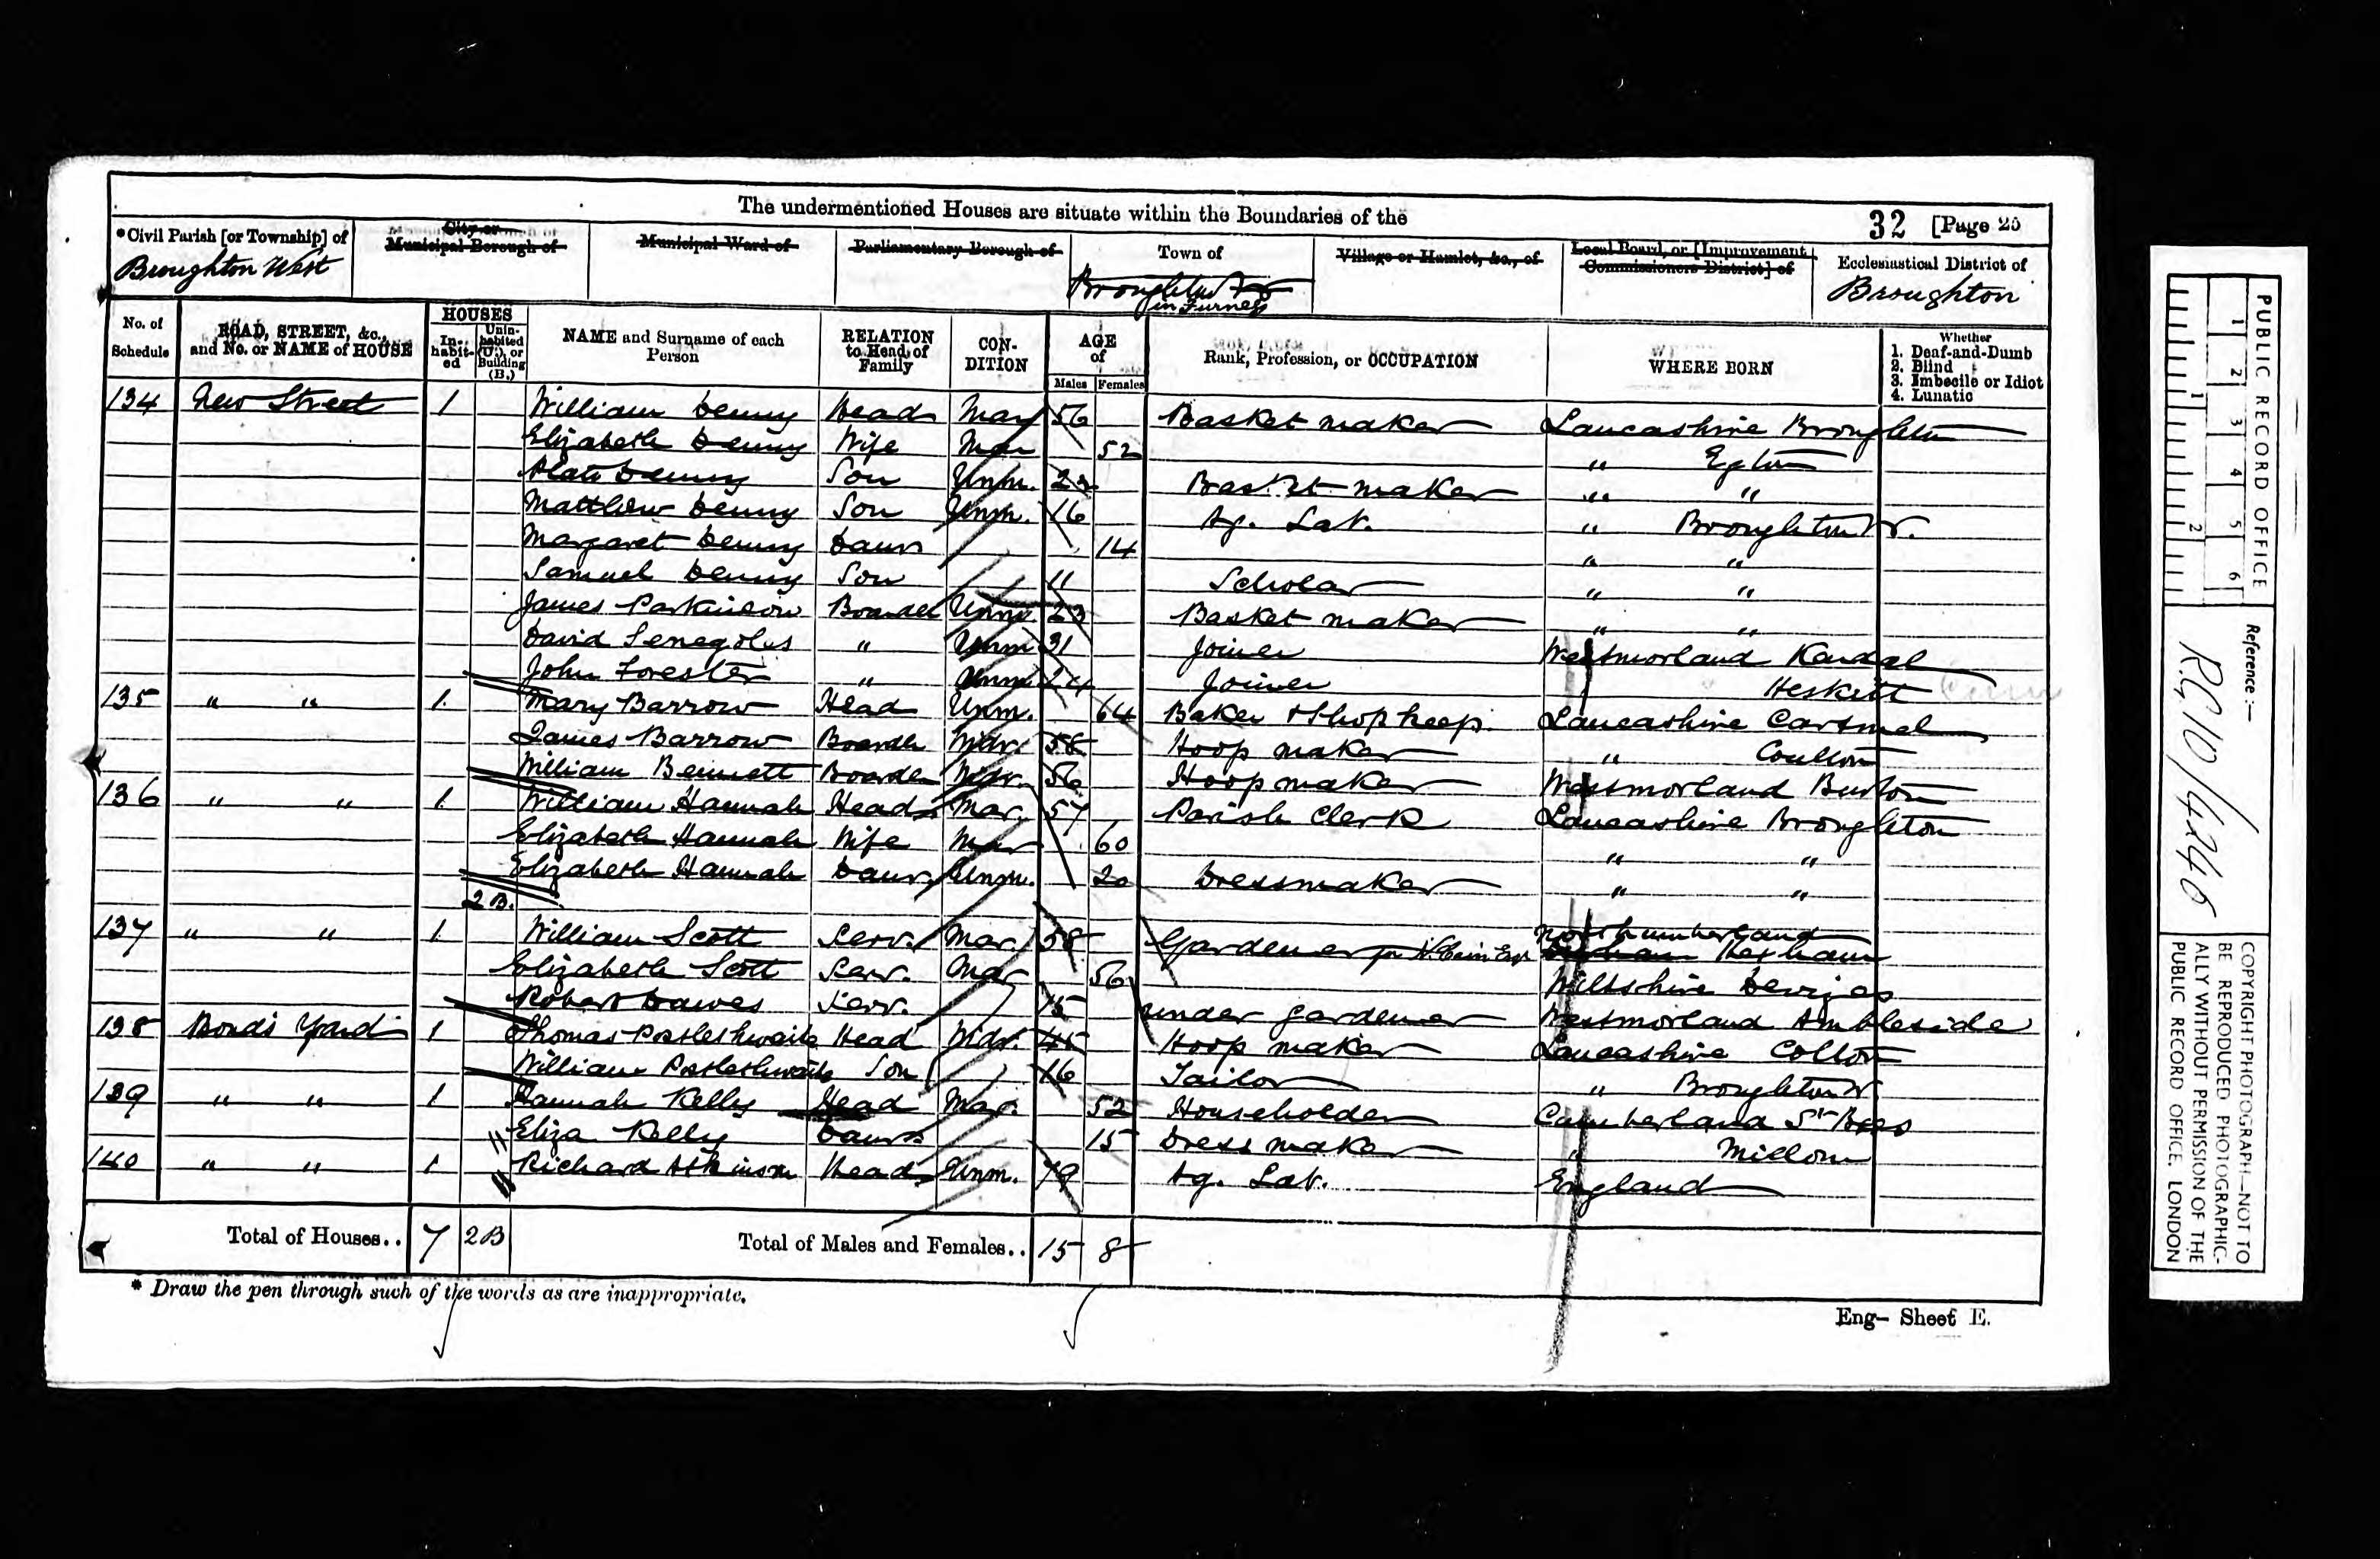 The undermentioned Houses are situate within the Boundaries of the
32 [Page 25
*Civil Parish [or Township] of Broughton West
City or Municipal Borough of
Municipal Ward of
Parliamentary Borough of
Town of in Furness
Village or Hamlet, &c., of
Local Board, or [Improvement Commissioners District] of
Ecclesiastical District of Broughton
No. of Schedule
ROAD, STREET, &c., and No. or NAME of HOUSE
HOUSES
In-habit-ed
Unin-habited (U.), or Building (B.)
NAME and Surname of each Person
RELATION to Head of Family
CON-DITION
AGE of
Males Females
Rank, Profession, or OCCUPATION
WHERE BORN
Whether
1. Deaf-and-Dumb
2. Blind
3. Imbecile or Idiot
4. Lunatic
134 New Street 1 William Denny Head Mar 56 Basket maker Lancashire Broughton
Elizabeth Denny Wife Mar 52 " Egton
Denny Son Unm. Basket maker " "
Matthew Denny Son Unm. 16 Ag. Lab. " Broughton W.
Margaret Denny Daur 14 " "
Samuel Denny Son 11 Scholar " "
James Parkinson Boarder Unm. 23 Basket maker " "
David " Unm 31 Joiner Westmorland Kendal
John Forester " Unm 24 Joiner Heskett
135 " " 1 Mary Barrow Head Unm. 64 Baker & Shopkeep. Lancashire Cartmel
James Barrow Boarder Widr. 58 Hoop maker " Coulton
William Bennett Boarder Widr. 56 Hoop maker Westmorland Burton
136 " " 1 William Hannah Head Mar. 57 Parish Clerk Lancashire Broughton
Elizabeth Hannah Wife Mar 60 " "
Elizabeth Hannah Daur. Unm. 20 Dressmaker " "
2 B.
137 " " 1 William Scott Serv. Mar. 58 Gardener Northumberland Hexham
Elizabeth Scott Serv. Mar 56 Wiltshire Devizes
Robert Dawes Serv. 15 Under gardener Westmorland Ambleside
138 Bond's Yard 1 Thomas Postlethwaite Head Widr. 45 Hoop maker Lancashire Colton
William Postlethwaite Son 16 Tailor " Broughton W.
139 " " 1 Hannah Kelly Head Mar. 52 Householder Cumberland St Bees
Eliza Kelly Daur 15 Dress maker " Millom
140 " " 1 Richard Atkinson Head Unm. 79 Ag. Lab. England
Total of Houses.. 7 2B Total of Males and Females.. 15 8
* Draw the pen through such of the words as are inappropriate.
Eng- Sheet E.
PUBLIC RECORD OFFICE
1 2 3 4 5 6
1 2
Reference:-
RG 10/4246
COPYRIGHT PHOTOGRAPH—NOT TO
BE REPRODUCED PHOTOGRAPHIC-
ALLY WITHOUT PERMISSION OF THE
PUBLIC RECORD OFFICE, LONDON